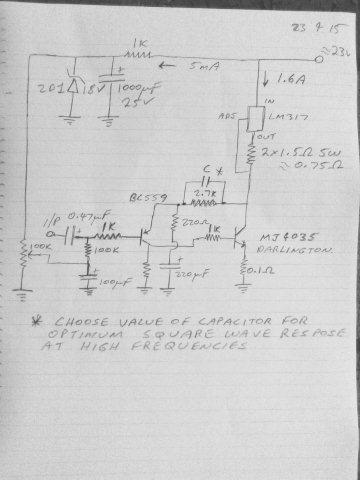 23 4 15
1K
≈23V
← 5mA
1.6A
ZD1
18V
1000µF
25V
IN
ADJ
LM317
OUT
2×1.5Ω 5W
≈ 0.75Ω
C *
BC559
2.7K
I/P
0.47µF
1K
220Ω
1K
100K
100K
MJ4035
DARLINGTON
100µF
220µF
0.1Ω
* CHOOSE VALUE OF CAPACITOR FOR
OPTIMUM SQUARE WAVE RESPOSE
AT HIGH FREQUENCIES